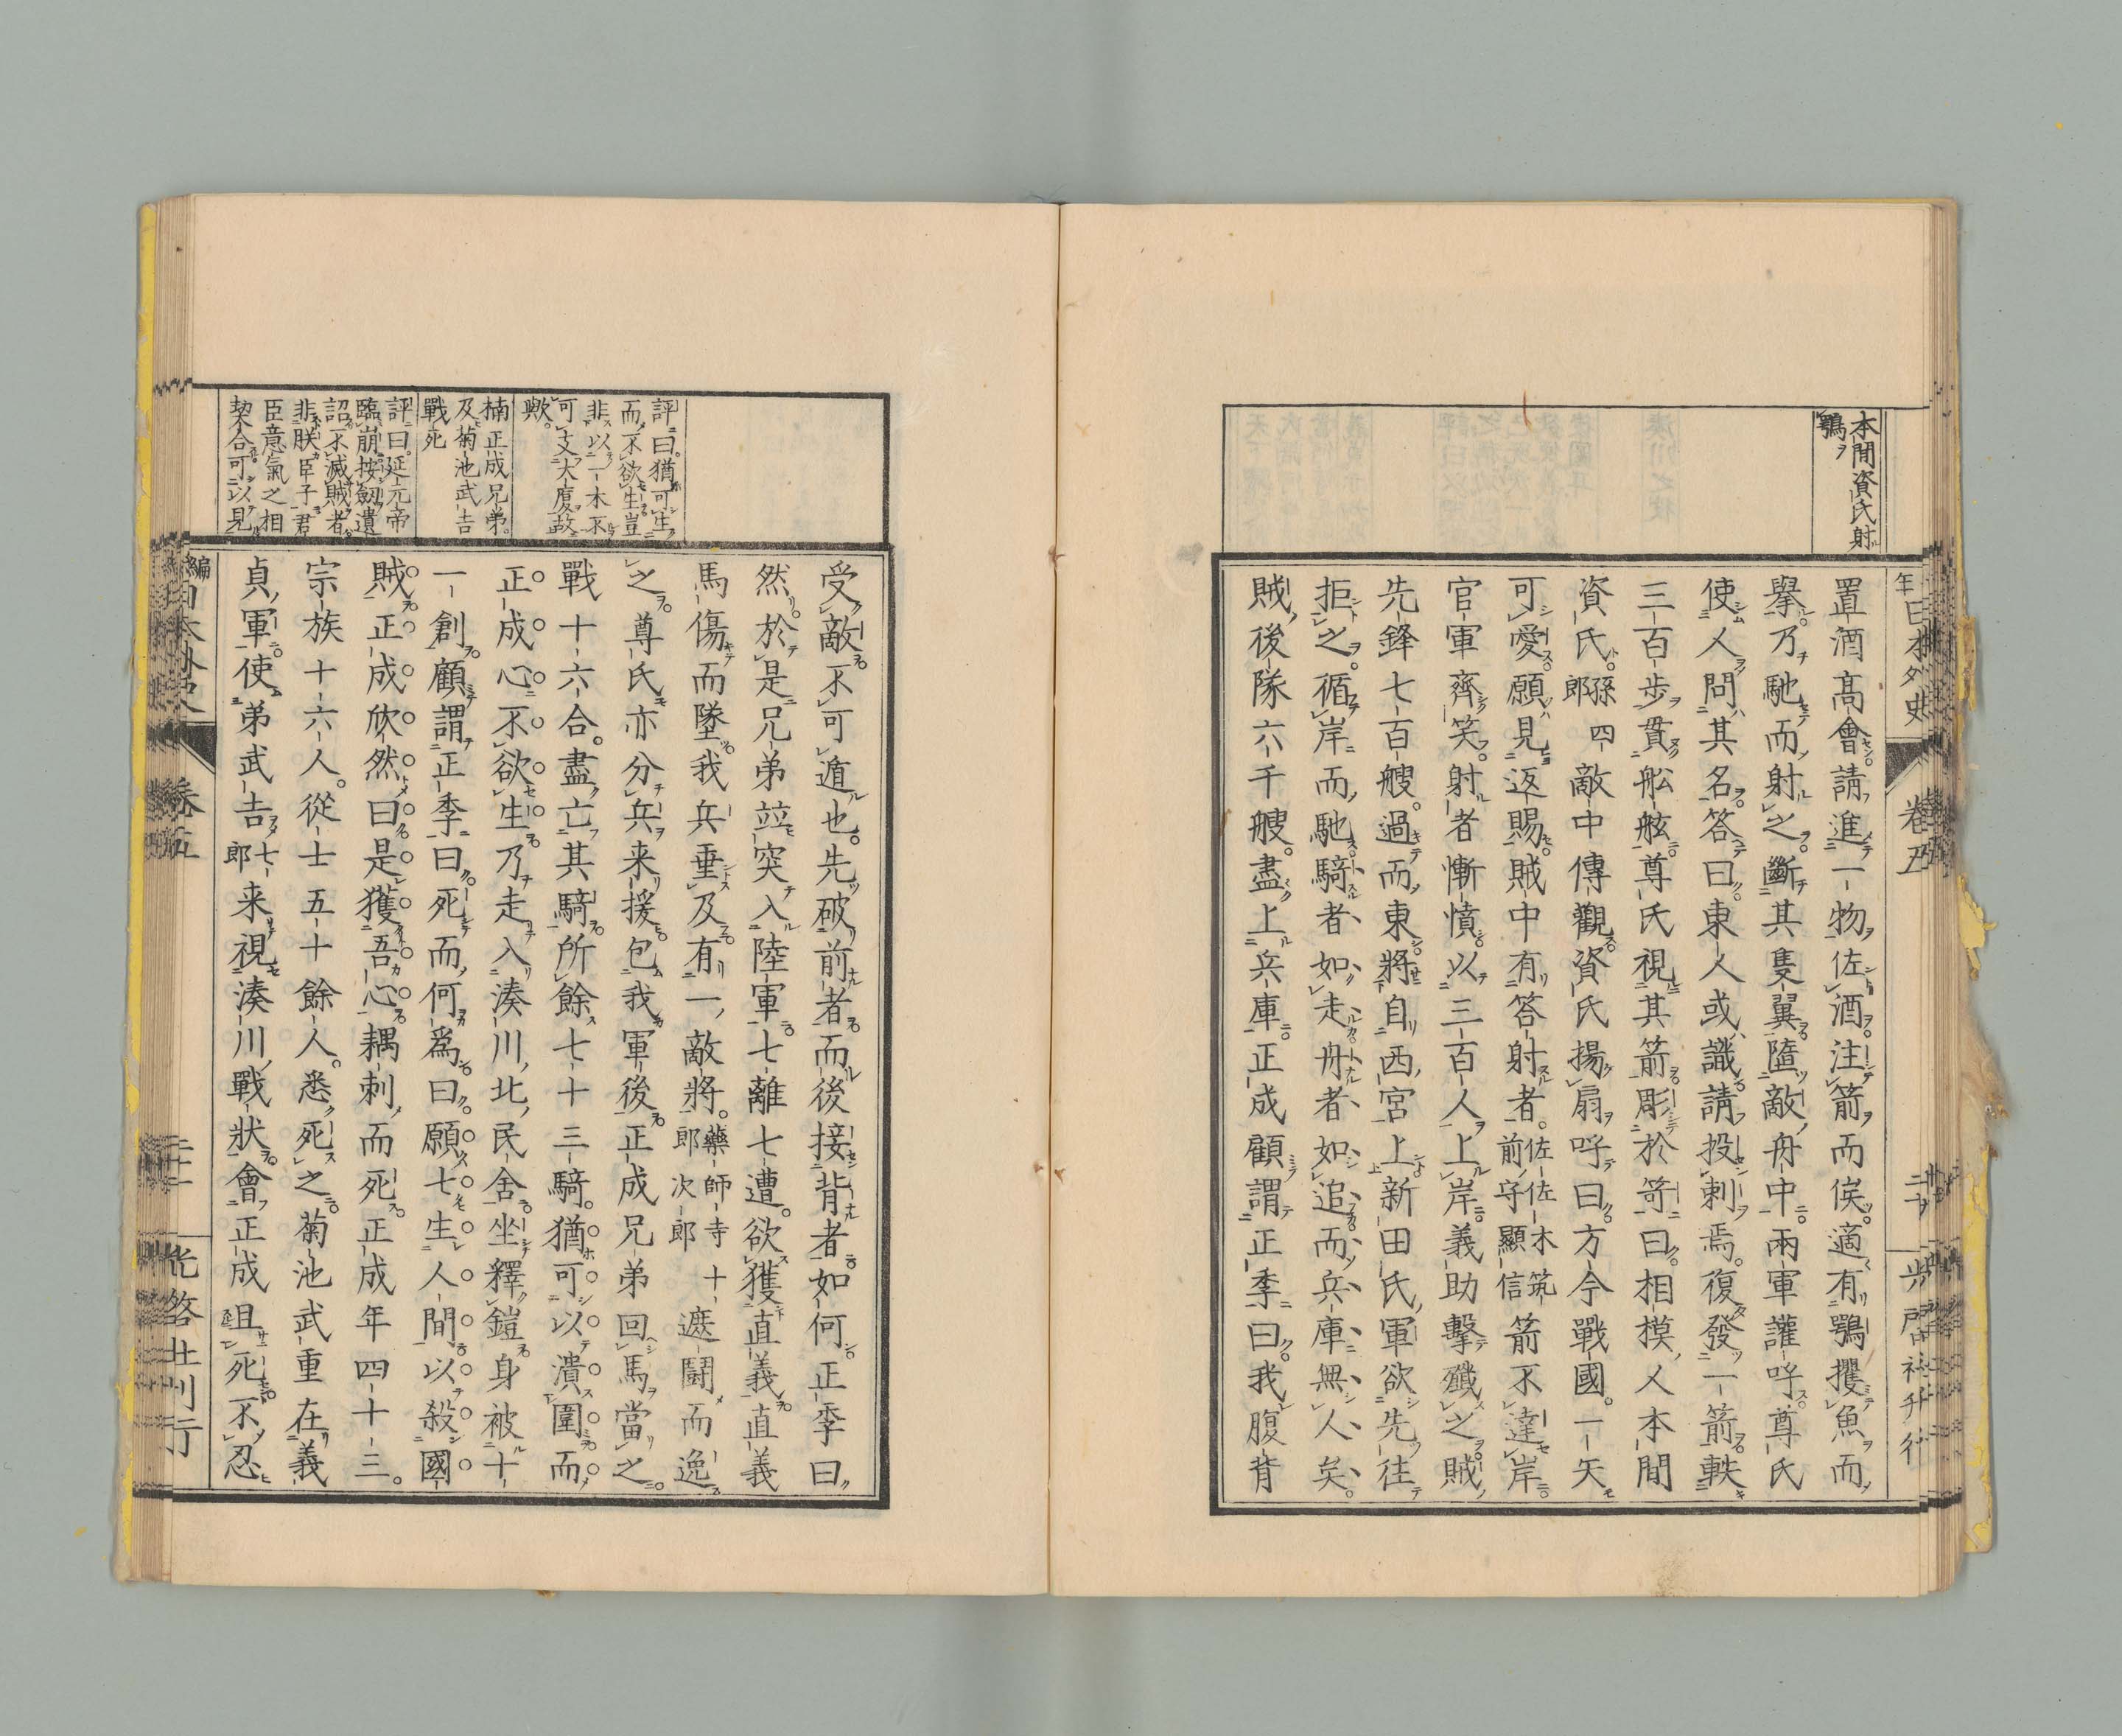 本間資氏射
鶚
年日本外史 卷五
置酒高會請進一物佐酒注箭而俟適有鶚攫魚而
擧乃馳而射之斷其隻翼隨敵舟中兩軍讙呼尊氏
使人問其名答曰東人或識請投刺焉復發一箭軼
三百歩貫舩舷尊氏視其箭彫於笴曰相摸人本間
資氏孫四郎敵中傳觀資氏揚扇呼曰方今戰國一矢
可愛願見返賜賊中有答射者佐佐木筑前守顯信箭不達岸
官軍齊笑射者慚憤以三百人上岸義助擊殲之賊
先鋒七百艘過而東將自西宮上新田氏軍欲先往
拒之循岸而馳騎者如走舟者如追而兵庫無人矣
賊後隊六千艘盡上兵庫正成顧謂正季曰我腹背
評曰猶可生
而不欲生豈
非以一木不
可支大厦故
歟
楠正成兄弟
及菊池武吉
戰死
評曰延元帝
臨崩按劔遺
詔不滅賊者
非朕臣子君
臣意氣之相
契合可以見
受敵不可遁也先破前者而後接背者如何正季曰
然於是兄弟竝突入陸軍七離七遭欲獲直義直義
馬傷而墜我兵垂及有一敵將藥師寺十郎次郎遮鬪而逸
之尊氏亦分兵来援包我軍後正成兄弟回馬當之
戰十六合盡亡其騎所餘七十三騎猶可以潰圍而
正成心不欲生乃走入湊川北民舍坐釋鎧身被十
一創顧謂正季曰死而何爲曰願七生人間以殺國
賊正成欣然曰是獲吾心耦刺而死正成年四十三
宗族十六人從士五十餘人悉死之菊池武重在義
貞軍使弟武吉七郎来視湊川戰狀會正成且死不忍
編 卷五 光啓社刊行